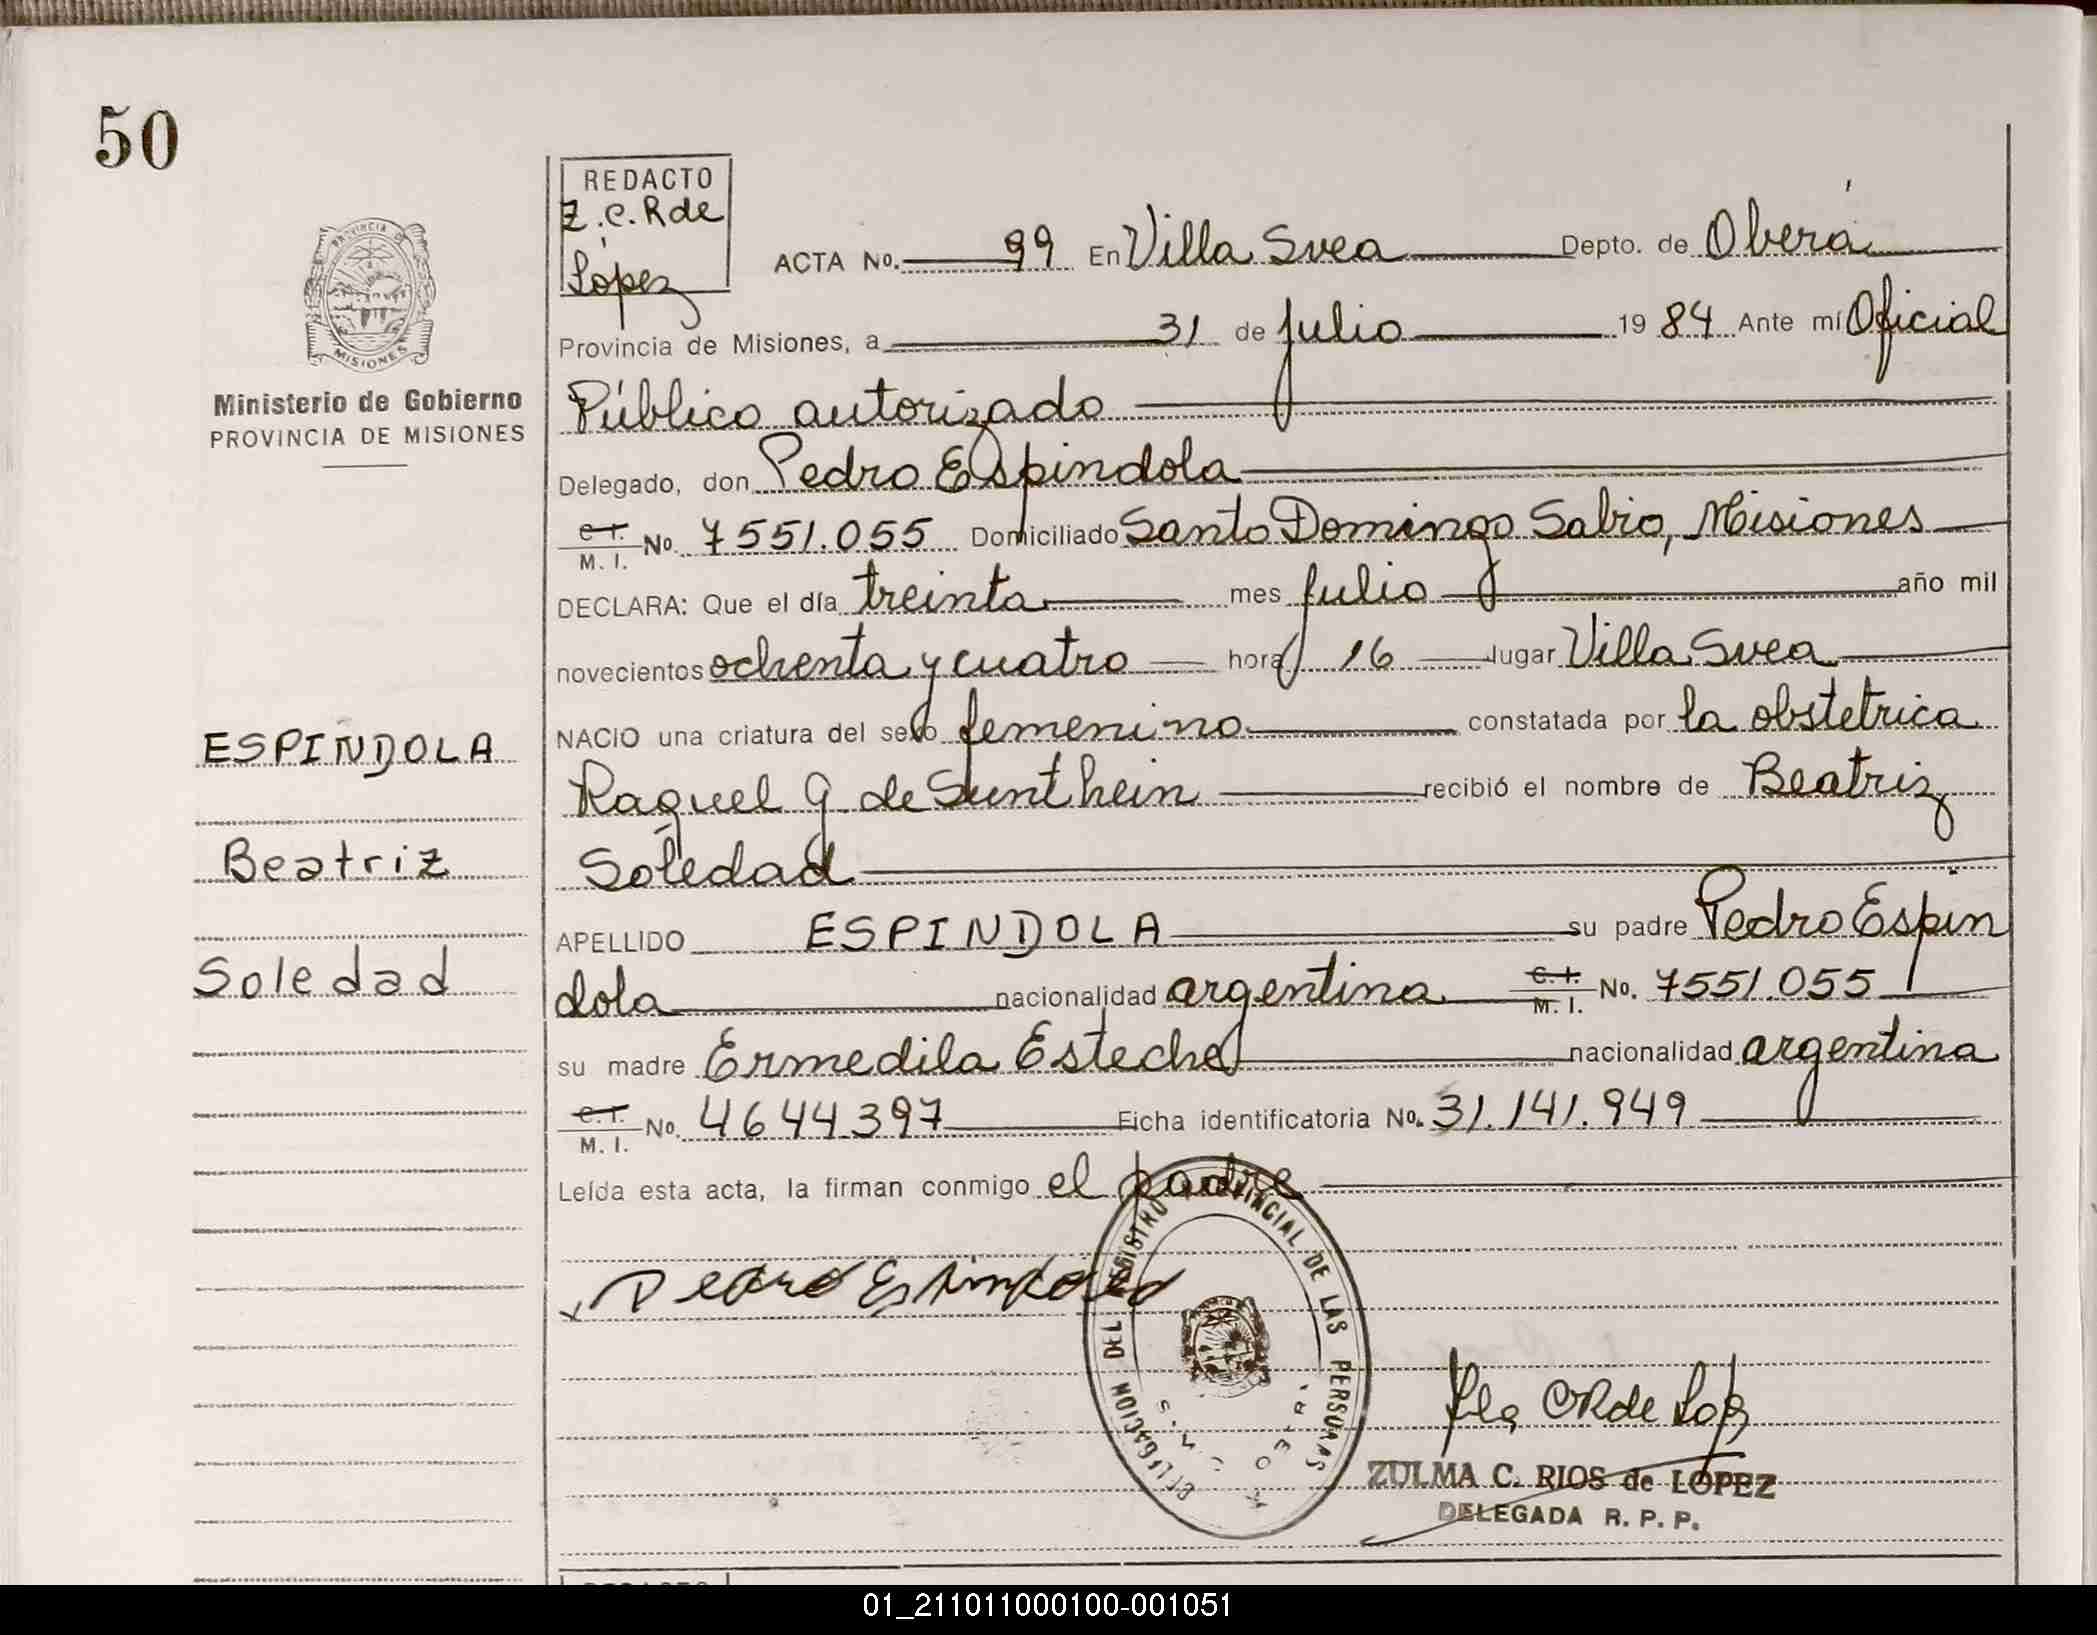 50
REDACTO
Z.C.R de
López
PROVINCIA DE
MISIONES
Ministerio de Gobierno
PROVINCIA DE MISIONES
ACTA No. 99 En Villa Svea Depto. de Oberá
Provincia de Misiones, a 31 de julio 1984 Ante mí Oficial
Público autorizado
Delegado, don Pedro Espindola
C.I. M. I. No. 7551.055 Domiciliado Santo Domingo Sabio, Misiones
DECLARA: Que el día treinta mes julio año mil
novecientos ochenta y cuatro hora 16 lugar Villa Svea
NACIO una criatura del sexo femenino constatada por la obstetrica
Raquel G. de Sunthein recibió el nombre de Beatriz
Soledad
APELLIDO ESPINDOLA su padre Pedro Espin
dola nacionalidad argentina C.I. M. I. No. 7551.055
su madre Ermedila Esteche nacionalidad argentina
C.I. M. I. No. 4644397 Ficha identificatoria No. 31.141.949
Leída esta acta, la firman conmigo el padre
ESPINDOLA
Beatriz
Soledad
Pedro Espindola
DELEGACION DEL REGISTRO PROVINCIAL DE LAS PERSONAS
ZULMA C. RIOS de LOPEZ
DELEGADA R. P. P.
01_211011000100-001051